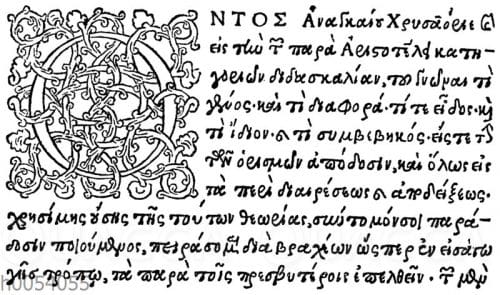 ΟΝΤΟΣ Ἀναγκαίου Χρυσαόριε καὶ
εἰς τὴν τῶν παρὰ Ἀριστοτέλει κατη-
γοριῶν διδασκαλίαν, τοῦ γνῶναι τί
γένος· καὶ τί διαφορά· τί τε εἶδος· καὶ
τί ἴδιον· καὶ τί συμβεβηκός· εἴς τε τὴν
τῶν ὁρισμῶν ἀπόδοσιν, καὶ ὅλως εἰς
τὰ περὶ διαιρέσεως καὶ ἀποδείξεως·
χρησίμης οὔσης τῆς τούτων θεωρίας, σύντομόν σοι παρά-
δοσιν ποιούμενος, πειράσομαι διὰ βραχέων ὥσπερ ἐν εἰσαγω
γῆς τρόπῳ, τὰ παρὰ τοῖς πρεσβυτέροις ἐπελθεῖν· τῶν μὲν
h0054055